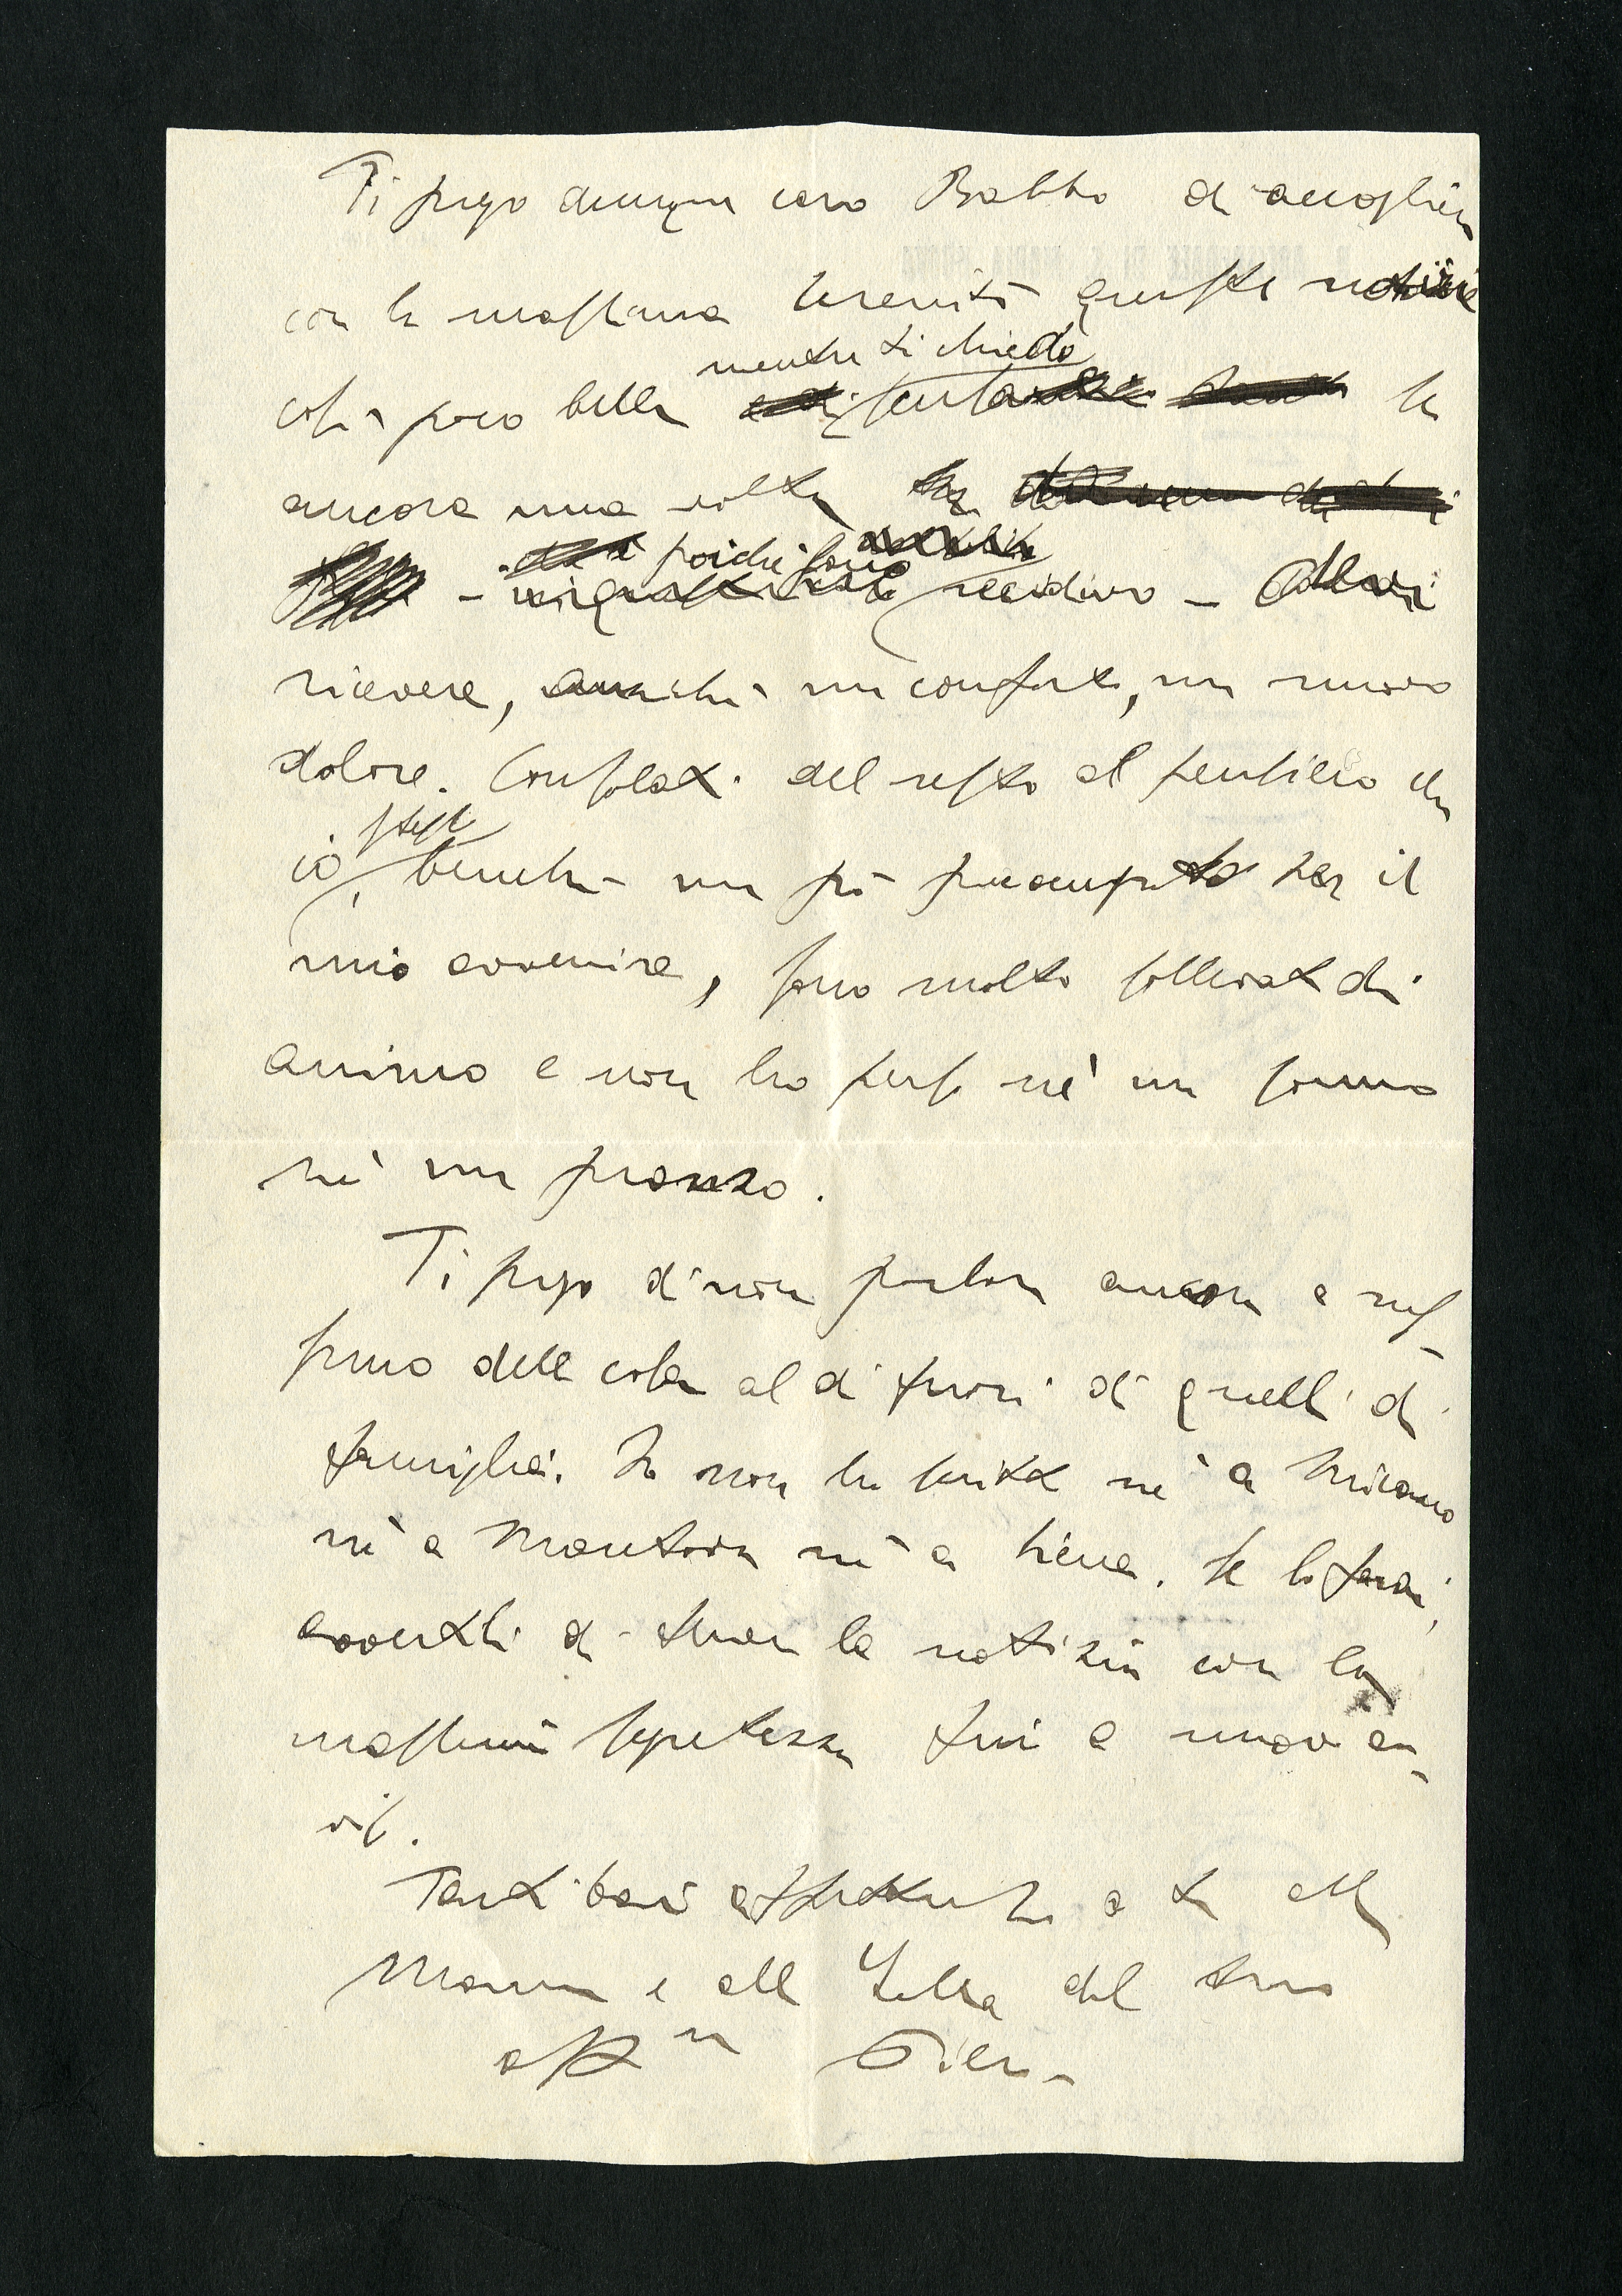 Ti prego dunque caro Babbo di accogliere
con la massima serenità queste notizie
mentre ti chiedo
così poco belle scusa se
ancora una volta
poichè sono
recidivo – devi
ricevere, anzichè un conforto, un nuovo
dolore. Consolati del resto al pensiero che
stesso
io, benchè un pò preoccupato per il
mio avvenire, sono molto sollevato di
animo e non ho perso nè un sonno
nè un pranzo.
Ti prego di non parlare ancora a nes-
suno della cosa al di fuori di quelli di
famiglia. Io non ho scritto nè a Milano
nè a Mantova nè a Siena. Se lo farai,
avvertili di tenere la notizia con la
massima segretezza fino a nuovo av-
viso.
Tanti baci affettuosi a te alla
Mamma e alla del tuo
aff.mo Piero